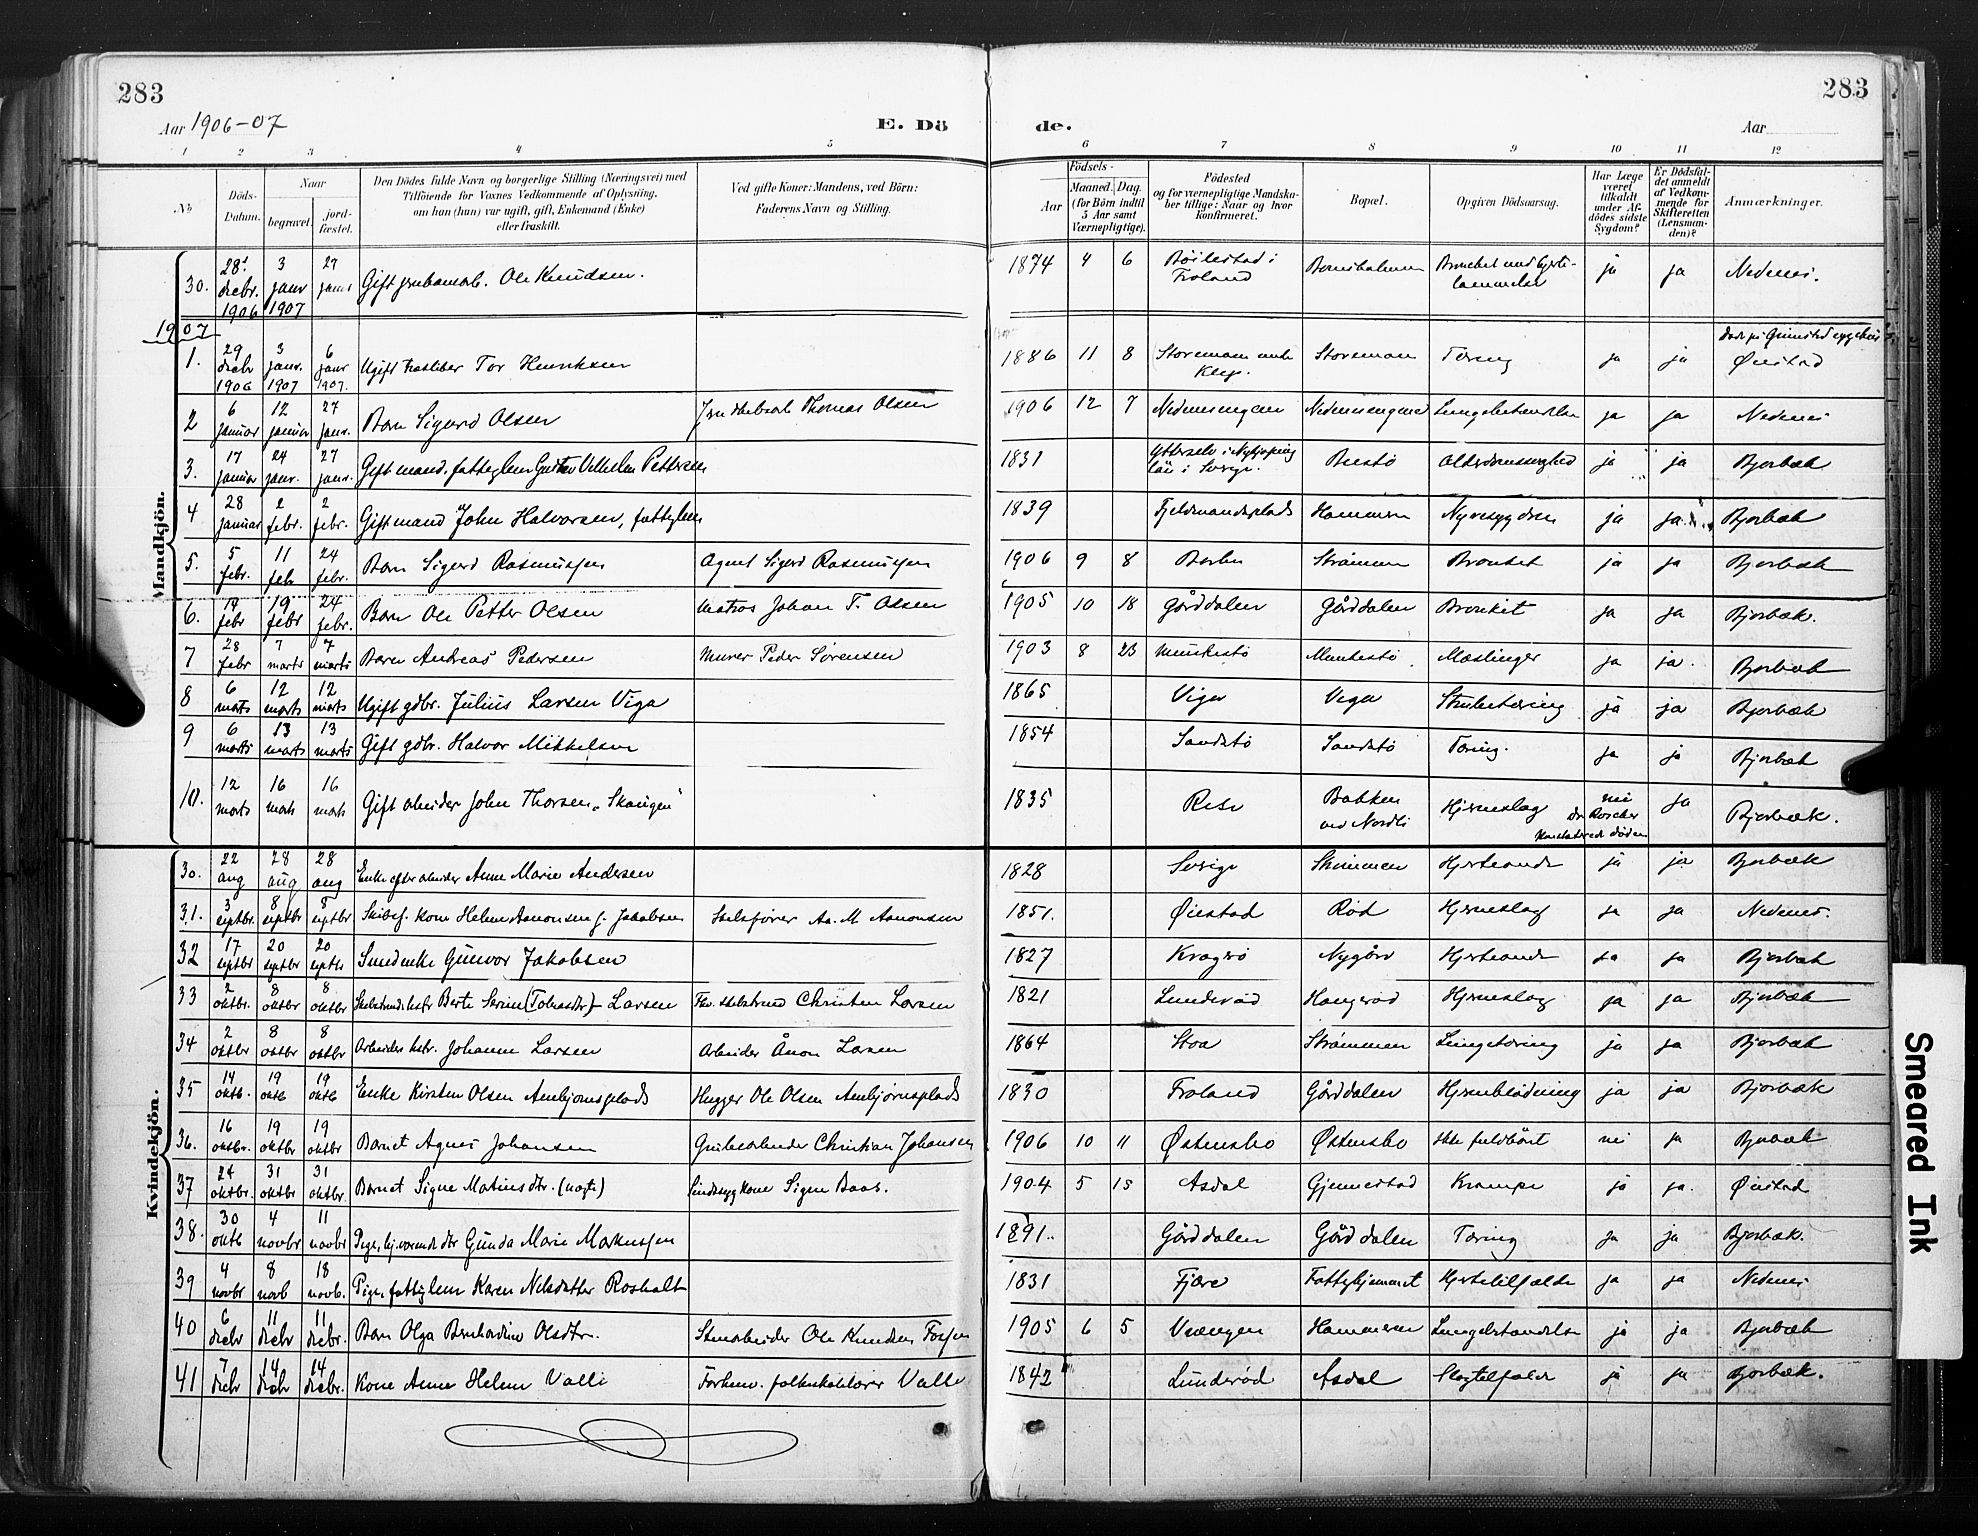 283
283
Aar 1906-07
E. Dö de.
Aar
1 2 3 4 5 6 7 8 9 10 11 12
No
Döds-Datum.
Naar
begravet.
jord-fæstet.
Den Dödes fulde Navn og borgerlige Stilling (Næringsvei) med
Tilföiende for Voxnes Vedkommende af Oplysning,
om han (hun) var ugift, gift, Enkemand (Enke)
eller fraskilt.
Ved gifte Koner: Mandens, ved Börn:
Faderens Navn og Stilling.
Födsels-
Aar
Maaned. Dag.
(for Börn indtil
5 Aar samt
Værnepligtige).
Födested
og for værnepligtige Mandska-
ber tillige: Naar og hvor
konfirmeret.
Bopæl.
Opgiven Dödsaarsag.
Har Læge
været
tilkaldt
under Af-
dödes sidste
Sygdom?
Er Dödsfal-
det anmeldt
af Vedkom-
mende for
Skifteretten
(Lensman-
den)?
Anmærkninger.
Mandkjön.
30. 28 decbr. 1906 3 janr 1907 27 Gift grubearb. Ole Knudsen. 1874 4 6 Böilestad i Froland ja ja Nedenes.
1907
1. 29 decbr 1906 3 janr. 1907 6 janr 1907. Ugift Tor Henriksen 1886 11 8 Storemoen Tæring ja ja Döde på Grimstad sygehus Øiestad
2 6 januar 12 januar 27 janr. Barn Sigurd Olsen Thomas Olsen 1906 12 7 Nedenesengene Nedenesengene Lungebetændelse ja ja Nedenes
3. 17 januar 24 janr. 27 janr. Gift mand, fattiglem Gustav Vilhelm Pettersen 1831 i Nykjøping län i Sverige. ja ja Bjorbæk
4 28 januar 2 febr. 2 febr. Gift mand John Halvorsen, fattiglem 1839 Fjeldmandsplads Hammeren Nyresygdom ja ja Bjorbæk
5. 5 febr. 11 feb 24 febr. Barn Sigurd Rasmussen Agent Sigurd Rasmussen 1906 9 8 Barbu Strømmen Bronket ja ja Bjorbæk
6. 14 febr 19 febr 24 febr. Barn Ole Petter Olsen Matros Johan T. Olsen 1905 10 18 Gårddalen Gårddalen Bronkit ja ja Bjorbæk.
7 28 febr 7 marts 7 marts Barn Andreas Pedersen Murer Peder Sørensen 1903 8 23 Munkestø Munkestø Mæslinger ja ja. Bjorbæk
8 6 marts 12 marts 12 marts Ugift gdbr. Julius Larsen Viga 1865 Viga Vega Strubetæring ja ja Bjorbæk
9 6 marts 13 marts 13 marts Gift gdbr. Halvor Mikkelsen 1854 Sandstø Sandstø Tæring. ja ja Bjorbæk
10. 12 marts 16 marts 16 marts Gift arbeider John Thorsen „Skaugen" 1835 Bakken ved Nordli Hjerneslag nei Dr. Roscher konstaterede döden ja Bjorbæk.
Kvindekjön.
30. 22 aug 28 aug 28 aug Enke efter arbeider Anne Marie Andersen 1828 Sverige Strømmen Hjerteonde ja ja Bjorbæk
31. 3 septbr. 8 septbr 8 septbr Skibsf. kone Helene Aanonsen f. Jakobsen Skibsfører Aa. M. Aanonsen 1851. Øiestad Rød Hjerneslag ja ja Nedenes.
32 17 septbr 20 septbr 20 septbr Gunvor Jakobsen 1827 Kragerø Nygård Hjerteonde ja ja Bjorbæk
33 2 oktbr. 8 oktbr 8 oktbr Berte Serine (Tobiasdtr) Larsen Christen Larsen 1821 Lunderød Haugerød Hjerneslag ja ja Bjorbæk
34 2 oktbr 8 oktbr 8 oktbr Arbeider Johanne Larsen Arbeider Ånon Larsen 1864 Stoa Strømmen Lungetæring ja ja Bjorbæk
35 14 oktb. 19 oktb 19 oktb Enke Kirsten Olsen Aenbjørnsplads Hugger Ole Olsen Aenbjørnsplads 1830 Froland Gårddalen Hjerneblødning ja ja Bjorbæk
36. 16 oktbr. 19 oktbr 19 oktbr Barnet Agnes Johansen Grubearbeider Christian Johansen 1906 10 11 Østensbo Østensbo Ikke fuldbåret nei ja Bjorbæk
37 24 oktbr. 31 oktbr 31 oktbr. Barnet Signe Matiusdtr. (uægte) Sindssyg kone Signe Baas. 1904 5 15 Asdal Gjennestad Krampe ja ja. Øiestad
38. 30 oktb 4 novbr 11 novbr Pige, hj.værende dtr Gunda Marie Markussen 1891. Gårddalen Gårddalen Tæring ja ja Bjorbæk.
39 4 novbr 8 novb 18 novb. Pige, fattiglem Karen Nilsdatter Rosholt 1831 Fjære Fattighjemmet Hjertetilfælde ja ja Nedenes
40 6 decbr 11 decbr 11 decbr. Barn Olga Bernhardine Olsdtr. Stenarbeider Ole Knudsen 1905 6 5 Vrængen Hammeren Lungebetændelse ja ja Bjorbæk
41 7 decbr 14 decbr 14 decbr. Kone Anne Helene Valle Forhenv. folkeskolelærer Valle 1842 Lunderød Asdal Slagtilfælde ja ja Bjorbæk.
Smeared Ink